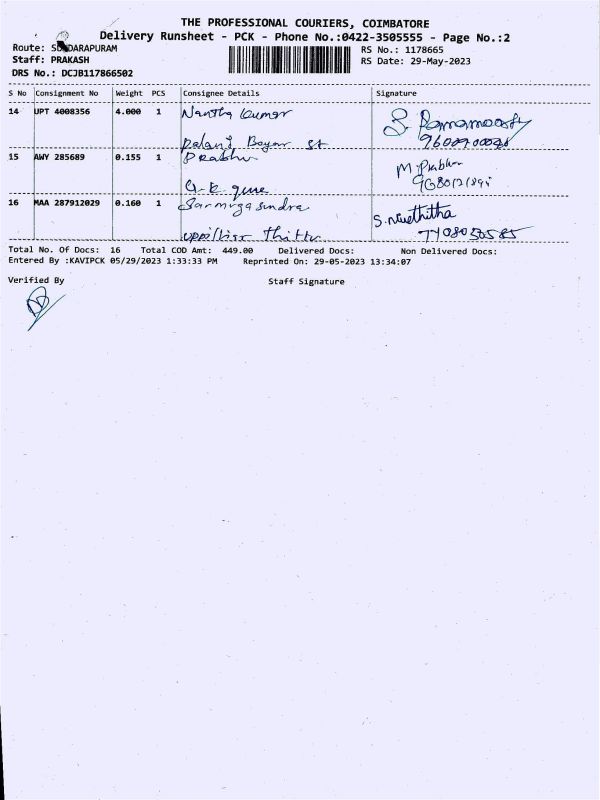 THE PROFESSIONAL COURIERS, COIMBATORE
Delivery Runsheet - PCK - Phone No.:0422-3505555 - Page No.:2
Route: SUNDARAPURAM
RS No.: 1178665
Staff: PRAKASH
RS Date: 29-May-2023
DRS No.: DCJB117866502
S No Consignment No Weight PCS Consignee Details Signature
14 UPT 4008356 4.000 1 Nantha kumar
S. Ramamoorthy
Palani Boyar st
15 AWY 285689 0.155 1 Prabhu
M. Prabhu
G.K.
16 MAA 287912029 0.160 1
S.
Thittu
7708050585
Total No. Of Docs: 16 Total COD Amt: 449.00 Delivered Docs: Non Delivered Docs:
Entered By :KAVIPCK 05/29/2023 1:33:33 PM Reprinted On: 29-05-2023 13:34:07
Verified By Staff Signature